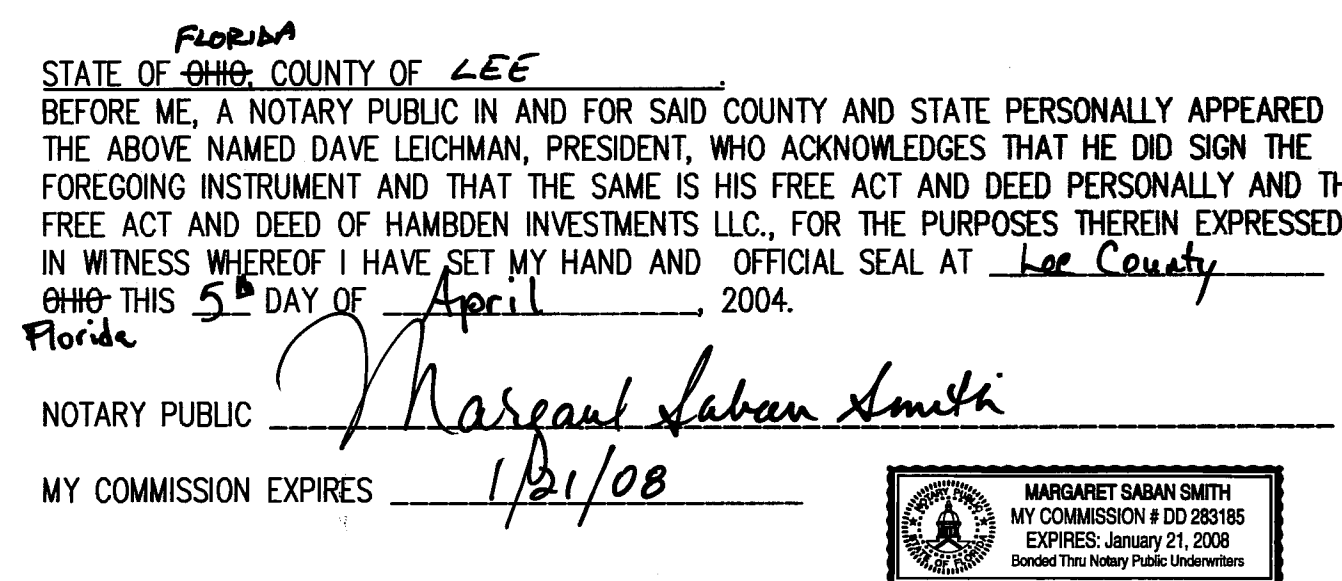 FLORIDA
STATE OF OHIO, COUNTY OF LEE.
BEFORE ME, A NOTARY PUBLIC IN AND FOR SAID COUNTY AND STATE PERSONALLY APPEARED
THE ABOVE NAMED DAVE LEICHMAN, PRESIDENT, WHO ACKNOWLEDGES THAT HE DID SIGN THE
FOREGOING INSTRUMENT AND THAT THE SAME IS HIS FREE ACT AND DEED PERSONALLY AND TH
FREE ACT AND DEED OF HAMBDEN INVESTMENTS LLC., FOR THE PURPOSES THEREIN EXPRESSED
IN WITNESS WHEREOF I HAVE SET MY HAND AND OFFICIAL SEAL AT Lee County
OHIO THIS 5th DAY OF April, 2004.
Florida
NOTARY PUBLIC Margaret Saban Smith
MY COMMISSION EXPIRES 1/21/08
NOTARY PUBLIC
STATE OF FLORIDA
MARGARET SABAN SMITH
MY COMMISSION # DD 283185
EXPIRES: January 21, 2008
Bonded Thru Notary Public Underwriters